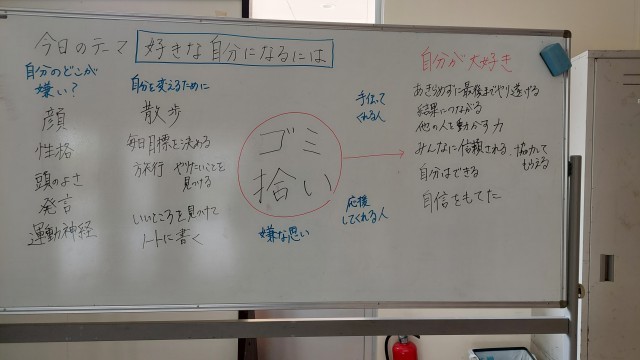 今日のテーマ 好きな自分になるには
自分のどこが
嫌い?
顔
性格
頭のよさ
発言
運動神経
自分を変えるために
散歩
毎日目標を決める
旅行 やりたいことを
見つける
いいところを見つけて
ノートに書く
ゴミ
拾い
手伝って
くれる人
応援
してくれる人
嫌な思い
自分が大好き
あきらめずに最後までやり遂げる
結果につながる
他の人を動かす力
みんなに信頼される 協力して
もらえる
自分はできる
自信をもてた